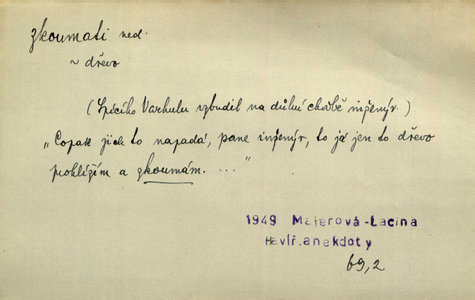 zkoumati ned.
~ dřevo
(Spícího Varhulu vzbudil na důlní chodbě inženýr.)
„Copak jich to napadá, pane inženýr, to já jen to dřevo
prohlížím a zkoumám. ..."
1949 Majerová-Lacina
Havíř.anekdoty
69,2